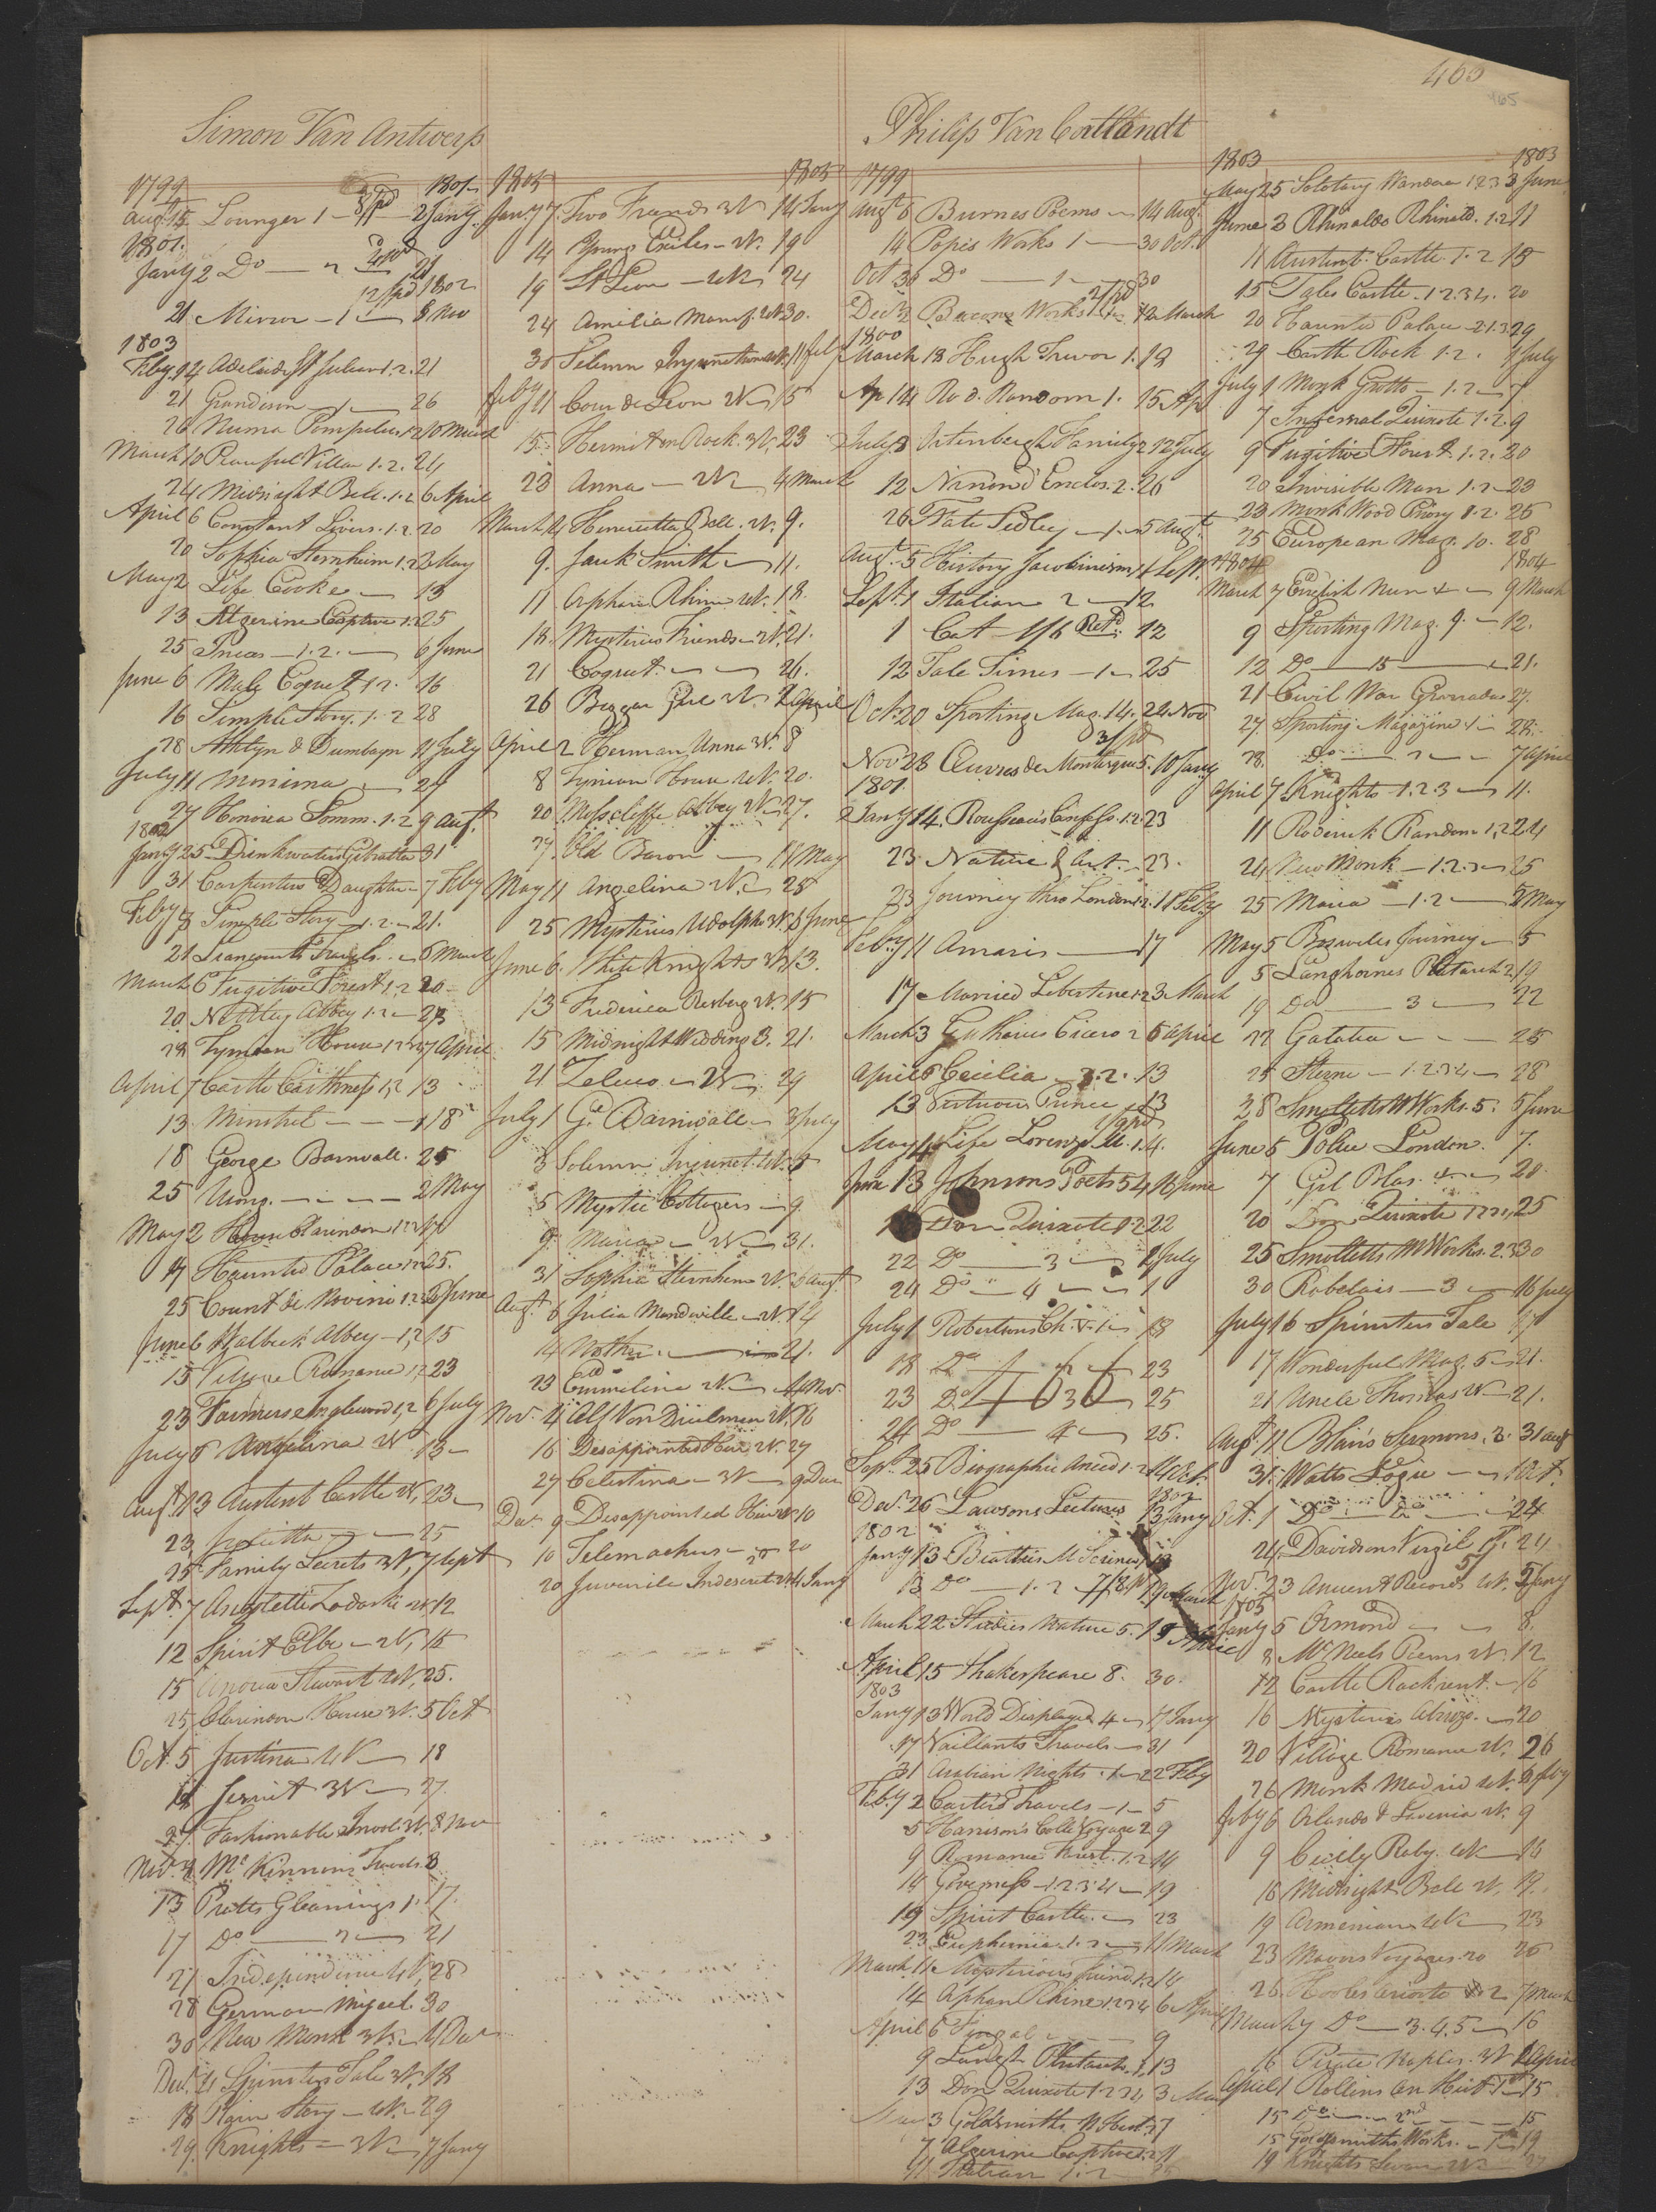 465
465
Simon Van Antwerp
1799 1801
Augt 15 Lounger 1 2 Jany
1801
Jany 2 Do 2 21
1802
21 Mirror 1 8 Nov
1803
Feby 14 Adelaide St Julian 1.2. 21
21 Grandison 1 26
26 Numa Pompilius 1.2 10 March
March 10 Villa 1.2. 24
24 Midnight Bell 1.2 6 April
April 6 Constant Lovers 1.2. 20
20 Sophia Sternheim 1.2 2 May
May 2 Life Cooke 13
13 Algerine Captive 1.2 25
25 Incas 1.2. 6 June
June 6 Male Coquet 1.2. 16
16 Simple Story 1.2 28
28 Athlyn & Dumbayn 11 July
July 11 Monima 27
27 Honoria Somm. 1.2 9 Augt
1802
Jany 25 Drinkwaters Gibralter 31
31 Carpenters Daughter 7 Feby
Feby 8 Simple Story 1.2 21.
21 Travels 6 March
March 6 Fugitive Forest 1.2 20
20 Netley Abbey 1.2 27
Tymian House 1.2 7 April
April 7 Castle Caithness 1.2 13
13 Minstrel 18
18 George Barnwall. 25
25 2 May
May 2 House Clarendon 1.2 17
17 Haunted Palace 1.2 25.
25 Count de Novini 1.2 6 June
June 6 Walbeck Abbey 1.2 15
15 Village Romance 1.2 23
23 Farmers Inglewood 1.2 6 July
July 6 Angelina 2V 13
Augt 13 Austent Castle 2V, 23
23 Julietta 25
25 Family Secrets 3V, 7 Sept
Sept 7 Lodoski 2V 12
12 Spirit Elbe 2V, 15
15 Stewart 2V, 25.
25 Clarendon House 3V. 5 Oct
Oct 5 Justina 2V 18
18 Jesuit 3V 27
27 Fashionable 2V. 8 Nov
Nov. 8 Mc Kinnons Travels 13
13 Pratts Gleanings 1. 17.
17 Do 2 21
21 Independence 4V, 28
28 German Misceel. 30
30 New Monk 3V. 4 Dec
Dec. 4 Spinsters Tale 3V. 18
18 Plain Story 2V. 29
29. Knights 3V 7 Jany
1805 1805
Jany 7. Two Friends 3V 14 Jany
14 Young Exiles 2V. 19
19 St Leon 2V 24
24 Amelia Mansf. 2V 30.
30 Solemn Injunction 2V. 11 Feby
Feby 11 Coeur de Leon 2V 15
15. Hermit on Rock. 3V, 23
23 Anna 2V 4 March
March 4 Henrietta Bell. 2V. 9.
9. Jack Smith 11.
11. Orphan Rhine 2V. 18.
18. Mysterious Friends 2V. 21.
21 Coquet. 26.
26 Beggar Girl 2V. 2 April
April 2 Herman Unna 3V. 8
8 Tynian House 2V. 20.
20 Abbey 2V. 27.
27. Old Baron 11 May
May 11 Angelina 2V. 25
25 Mysteries Udolpho 3V. 6 June
June 6. White Knights 3V 13.
13 Frederica Risberg 2V. 15
15 Midnight Wedding 3. 21.
21 Zeluco 2V. 29
July 1 Ge Barnwall 3 July
3 Solemn Injunct. 2V. 5
5 Mystic Cottagers 9.
9. Maria 2V 31.
31 Sophia Sternheim 2V. 6 Augt
Augt 6 Julia Mandeville 2V. 14
14 21.
23 Emmeline 2V. 4 Nov.
Nov. 4 Alf Von Duilman 2V. 16
16 Disappointed Heir 2V. 27
27 Celestina 3V 9 Dec
Dec. 9 Disappointed Heir 2V. 10
10 Telemachus 20
20 Juvenile Indescret. 2V. 4 Jany
Philip Van Cortlandt
1799
Augt 6 Burnes Poems 14 Aug.
14 Popes Works 1 30 Oct.
Oct 30 Do 1 30
Decr 2 Bacons Works 12 March
1800
March 13 Hugh Trevor 1. 19
Ap 14 Rod. Random 1. 15 Ap
July 8 Family 2 12 July
12 Ninon d'Enclos. 2. 26
26 Kate Sidley 1. 5 Augt
Augt. 5 History Jacobinism 1 Sept.
Sept. 1 Italian 2 12
1 Cat 1/6 Retd. 12
12 Tale Times 1 25
Oct. 20 Sporting Mag. 14. 24 Nov
Nov 28 Œuvres de Montesquieu 5. 10 Jany
1801.
Jany 14. Rousseau's Confess. 1.2. 23
23. Nature & Art. 23.
23 Journey thro London 1.2. 11 Feby
Feby 11 Amaris 17
17 Married Libertine 1.2 3 March
March 3 Guthries Cicero 2 6 April
April 6 Cecilia 3.2. 13
13 Virtuous Prince 13
May 14 Life Lorenzo M. 1.4.
June 13 Johnsons Poets 54 16 June
16 Don Quixote 1.2 22
22 Do 3 1 July
24 Do 4 1
July 1 Robertsons Ch. V. 1 18
18 Do 23
466
23 Do 3 25
24 Do 4 25.
Sept. 25 Biographic Anecd 1.2 14 Oct.
1802
Dec. 26 Lawsons Lectures 13 Jany
1802
Jany 13 Beatties M Science 13
13 Do 1.2 19 March
March 22 Studies Nature 5. 15 April
April 15 Shakespeare 8. 30.
1803
Jany 13 World Displayed 4 17 Jany
17 Vaillants Travels 31
31 Arabian Nights 1 22 Feby
Feby 2 Carters Travels 1 5
5 Harrison's Colle Voyage 2 9
9 Romance Forest. 1.2 14
14 Governess 1.2.3.4 19
19 Spirit Castle. 23
23 Euphemia 1.2 11 March
March 11 Mysterious Friend. 1.2 14
14 Orphan Rhine 1.2.3.4 6 April
April 6 Fingal 9
9 Plutarch 1, 13
13 Don Quixote 1.2.3.4 3 May
May 3 Goldsmiths N. Hist. 7
7 Algerine Captive 1.2 11
11 Italian 1.2
1803 1803
May 25 Solotary Wanderer 1.2.3 3 June
June 3 Rhinaldo Rhinald. 1.2 11
11 Austent. Castle 1.2 15
15 Tales Castle 1.2.3.4. 20
20 Haunted Palace 2.1.3 29
29 Castle Rock 1.2. 1 July
July 1 Monk Grotto 1.2 7
7 Infernal Quixote 1.2. 9
9 Fugitive Forest 1.2. 20
20 Invisible Man 1.2 23
23 Monk Wood Priory 1.2. 25
25 European Mag. 10. 28
1804 1804
March 7 English Nun 9 March
9 Sporting Mag. 9. 12.
12 Do 15 21.
21 Civil War Granadas 27.
27. Sporting Magazine 1 28.
28. Do 2 7 April
April 7. Knights 1.2.3 11.
11 Roderick Random 1,2 24
24 New Monk 1.2.3 25
25 Maria 1.2 5 May
May 5 Boswells Journey 5
5 Langhornes Plutarch 2 19
19 Do 3 22
22 Galatea 25
25 Sterne 1.2.3.4 28
28 Smolletts M Works. 5. 5 June
June 5 Police London. 7.
7 Gil Blas. 4. 20
20 Don Quixote 1.2.3, 25
25 Smolletts M Works. 2.3 30
30 Rabelais 3 16 July
July 16 Spinsters Tale 17
17 Wonderful Mag. 5 21.
21 Uncle Thomas 2V 21.
Augt 11 Blairs Sermons. 3. 31 Aug
31. Watts Logic 1 Oct.
Oct. 1 Do Do 24
24. Davidsons Virgil 24
Nov. 23 Ancient Records 2V. 5 Jany
1805
Jany 5 Ormond 8.
8 Mc Neels Poems 2V. 12
12 Castle Rackrent. 16
16 Mysteries Abruzo. 20
20 Village Romance 2V. 26
26 Monk Madrid 2V. 6 Feby
Feby 6 Orlando & Lavinia 2V. 9
9 Cicily Raby. 4V 16
16 Midnight Bell 2V. 19.
19 Armenian 4V 23
23 Mavors Voyages. 20 26
26. Hooles Ariosto 2 7 March
March 7 Do 3.4.5 16
16 Pirate Naples. 3V 1 April
April 1 Rollins An Hist. 1st 15
15 Do 2nd 15
15 Goldsmiths Works. 19
19 Knights Swan 2V